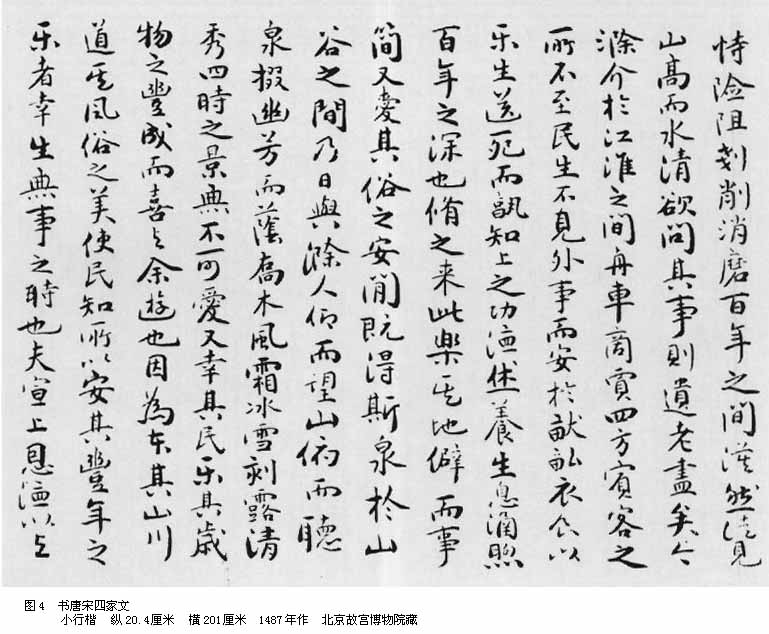 恃險阻剗削消磨百年之間漠然徒見
山髙而水清欲問其事則遺老盡矣今
滁介於江淮之間舟車商賈四方賓客之
所不至民生不見外事而安於畎畝衣食以
乐生送死而孰知上之功德休養生息涵煦
百年之深也脩之来此樂其地僻而事
簡又愛其俗之安閒既得斯泉於山
谷之間乃日與滁人仰而望山俯而聽
泉掇幽芳而蔭喬木風霜冰雪刻露清
秀四時之景無不可愛又幸其民乐其歲
物之豐成而喜与余遊也因為本其山川
道其風俗之美使民知所以安其豐年之
乐者幸生無事之時也夫宣上恩德以与
图4 书唐宋四家文
小行楷 纵20.4厘米 横201厘米 1487年作 北京故宫博物院藏